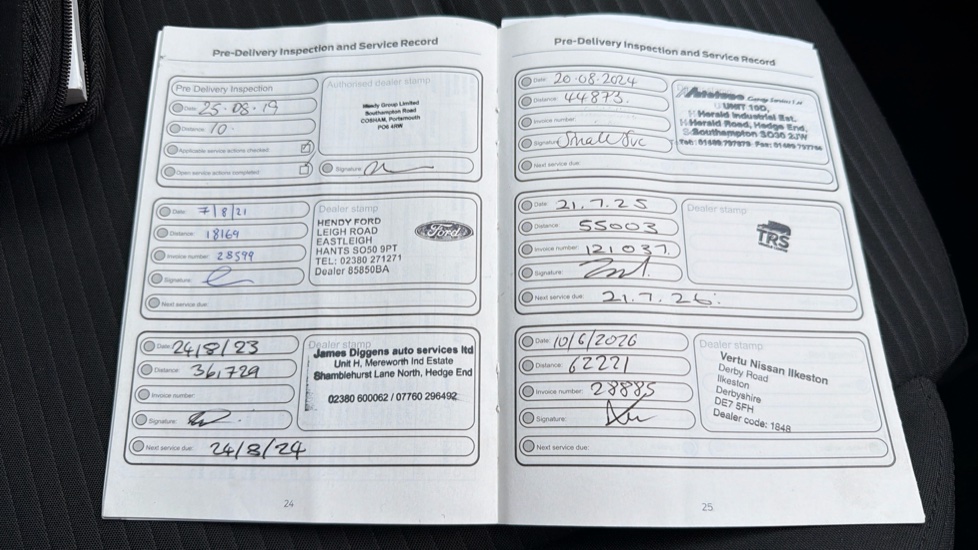 Pre-Delivery Inspection and Service Record
Pre Delivery Inspection
Date: 25·08·19
Distance: 10
Applicable service actions checked:
Open service actions completed:
Authorised dealer stamp
Hendy Group Limited
Southampton Road
COSHAM, Portsmouth
PO6 4RW
Signature:
Date: 7/8/21
Distance: 18169
Invoice number: 28599
Signature:
Next service due:
Dealer stamp
HENDY FORD
LEIGH ROAD
EASTLEIGH
HANTS SO50 9PT
TEL: 02380 271271
Dealer 85850BA
Ford
Date: 24/8/23
Distance: 36,729
Invoice number:
Signature:
Next service due: 24/8/24
Dealer stamp
James Diggens auto services ltd
Unit H, Mereworth Ind Estate
Shamblehurst Lane North, Hedge End
02380 600062 / 07760 296492
24
Pre-Delivery Inspection and Service Record
Date: 20·08·2024
Distance: 44873.
Invoice number:
Signature: Small Svc
Next service due:
UNIT 19D,
Herald Industrial Est.
Herald Road, Hedge End,
Southampton SO30 2JW
Date: 21.7.25
Distance: 55003
Invoice number: 121037
Signature:
Next service due: 21.7.26.
Dealer stamp
TRS
Date: 10/6/2026
Distance: 62221
Invoice number: 28885
Signature:
Next service due:
Dealer stamp
Vertu Nissan Ilkeston
Derby Road
Ilkeston
Derbyshire
DE7 5FH
Dealer code: 1848
25